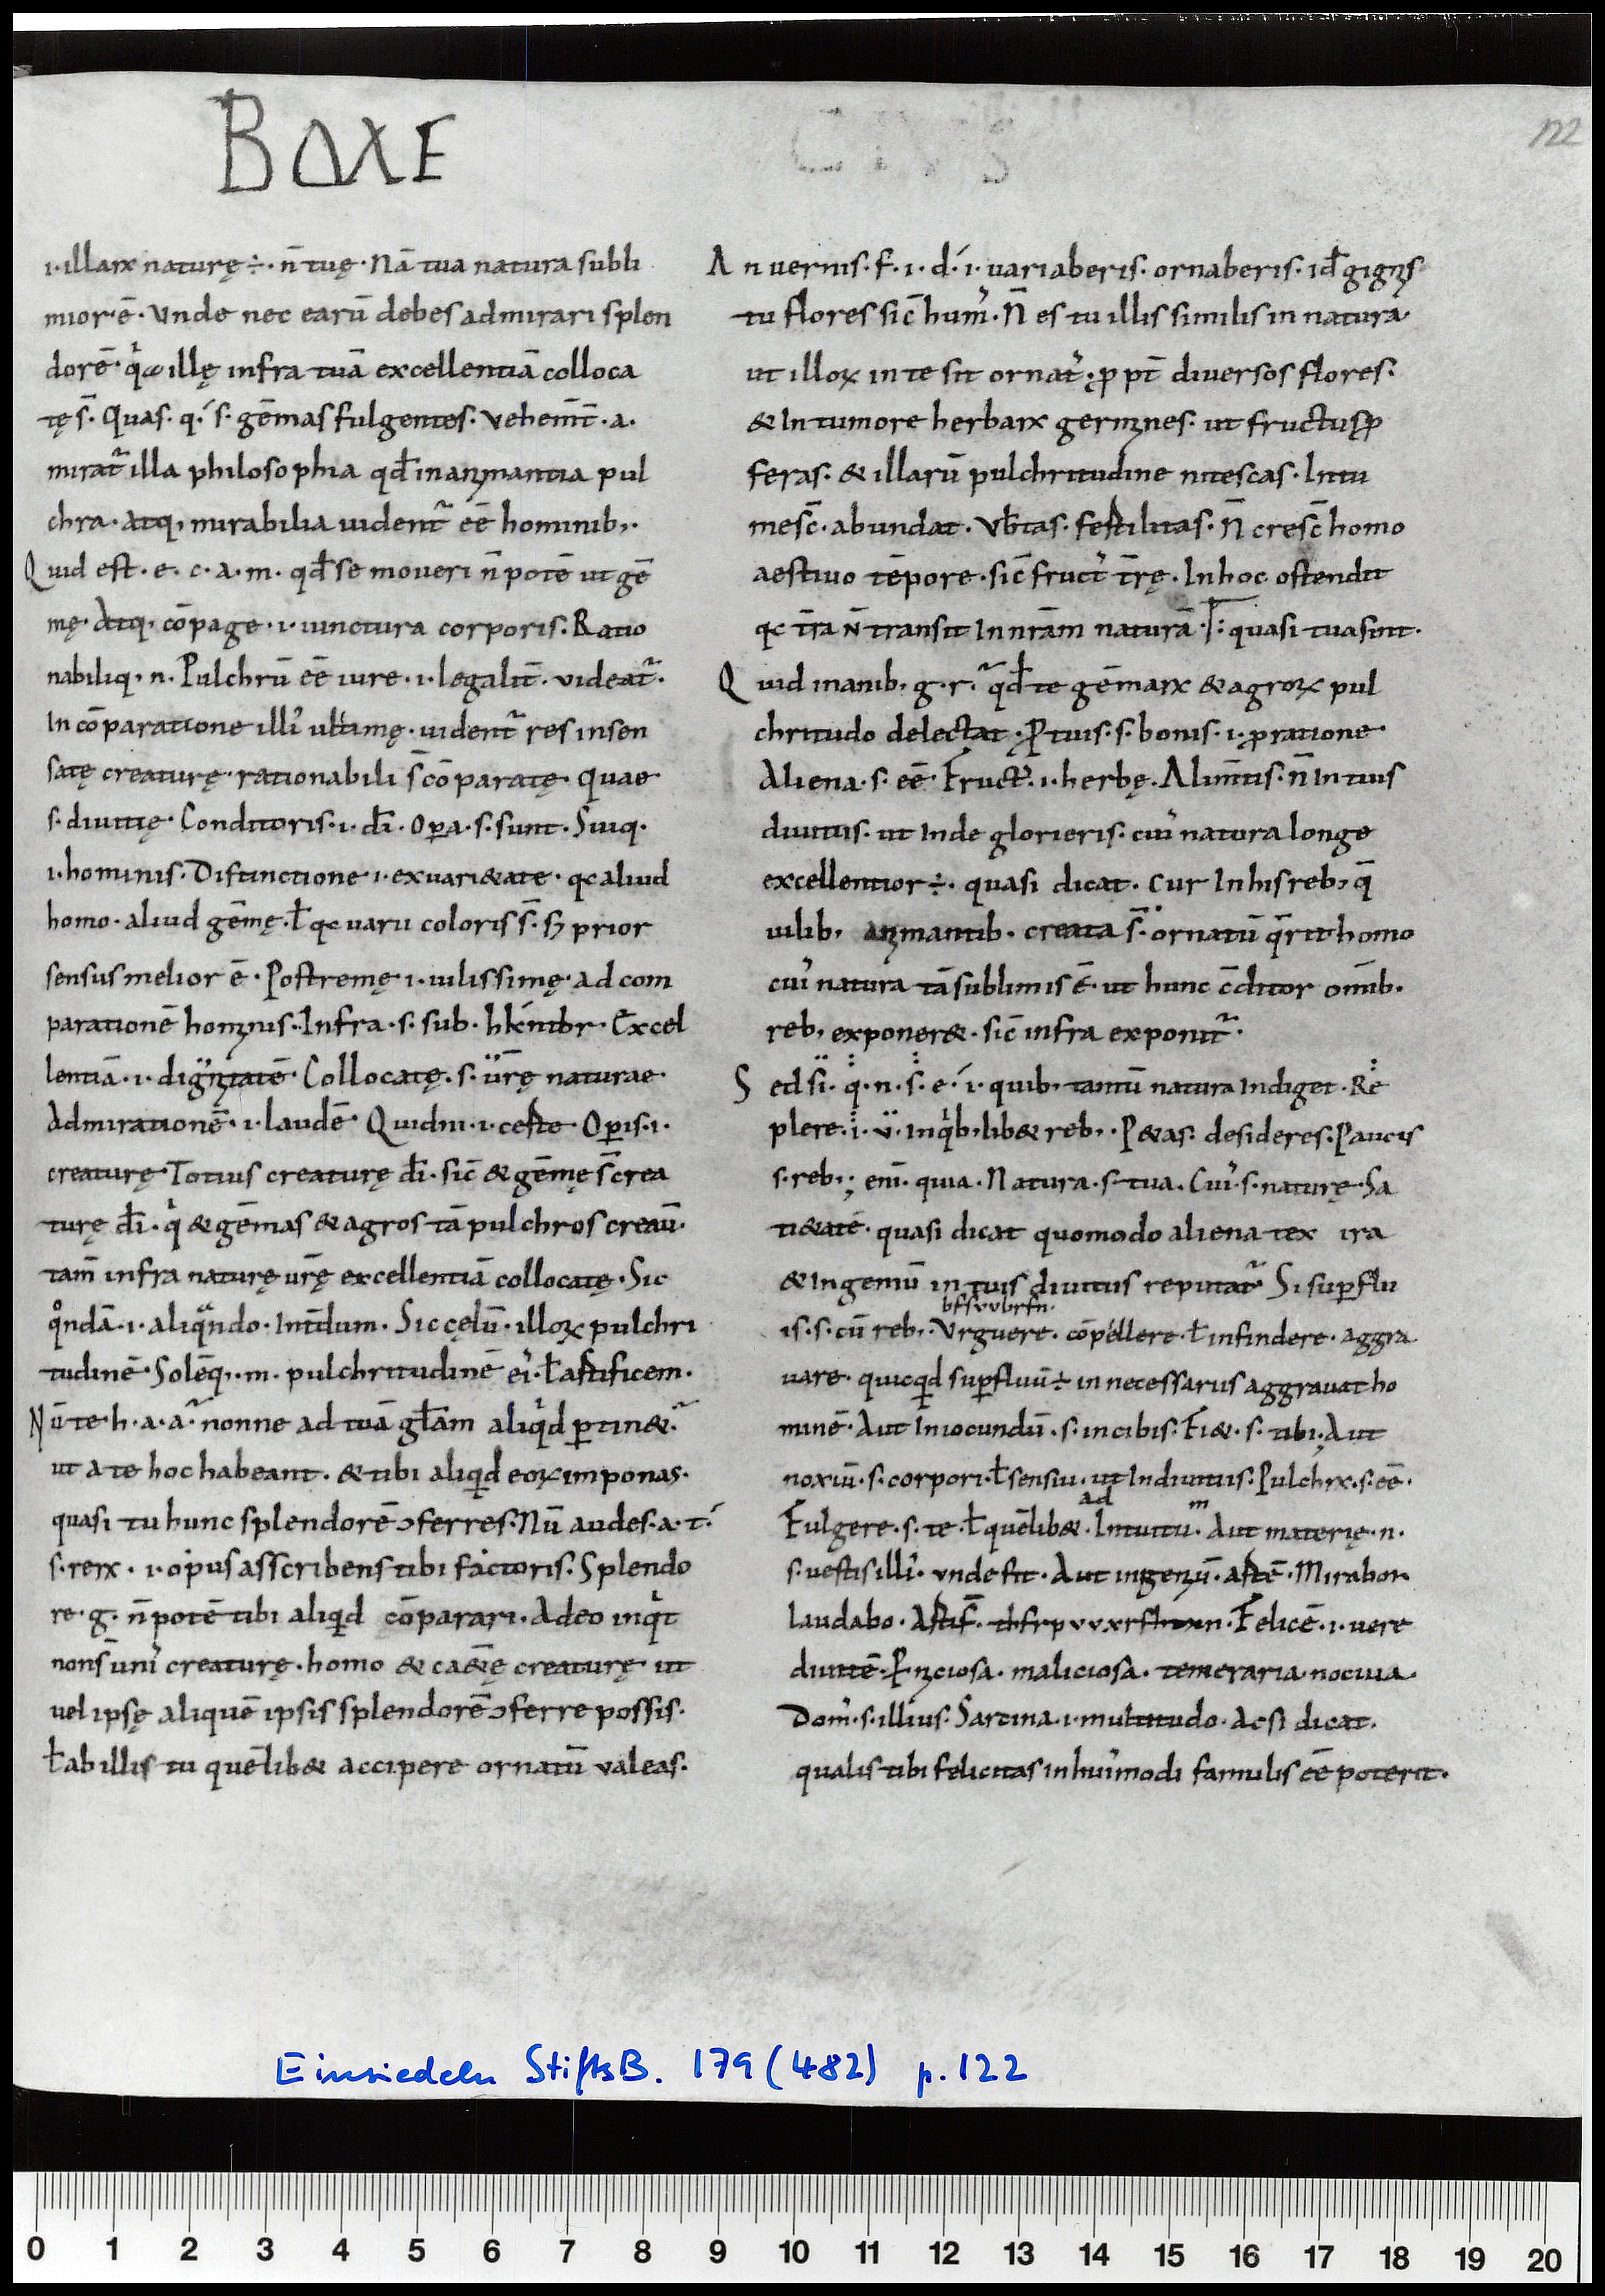 BOΛE
122
.i. illarx naturę ÷. n̄ tuę. Nā tua natura subli
mior ē. Vnde nec earū debes admirari splen
dorē. illę infra tuā excellentiā colloca
tę s̄. Quas. q. í. s. gēmas fulgentes. Vehem̄t̄. a.
mirat᷑ illa philosophia qd̄ inanimantia pul
chra. Atq, mirabilia uident᷑ eē hominib,.
Quid est. e. c. a. m. qd̄ se moueri n̄ potē ut gē
mę. Atq, cōpage .i. iunctura corporis. Ratio
nabiliq, n. Pulchrū eē iure .i. legalit̄. videat᷑.
In cōparatione illi᾿ ultimę. uident᷑ res insen
satę creaturę. rationabili s̄ cōparatę. Quae
s. diuitię. Conditoris .i. dī. Opa. s. sunt. Suiq.
.i. hominis. Distinctione .i. ex uari&ate. qc aliud
homo. aliud gēmę. ł qc uarii coloris s̄. s; prior
sensus melior ē. Postremę .i. uilissimę. ad com
parationē hominis. Infra. s. sub. Excel
lentiā .i. dignitatē. Collocatę. s. ūrę naturae.
Admirationē .i. laudē. Quidni .i. certe. Opis .i.
creaturę. Totius creaturę dī. sic̄ & gēmę s̄ crea
turę dī. qͥ & gēmas & agros tā pulchros creaū.
tam̄ infra naturę ūrę excellentiā collocatę. Sic
qͦndā .i. aliqͣndo. Int̄dum. Sic cęlū. illoꝝ pulchri
tudinē. Solēq,. m. pulchritudinē ei᾿. ł artificem.
Nū te. h. a. a᷑. nonne ad tuā gl̄am aliqͥd ptin&᷑.
ut a te hoc habeant. & tibi aliqd eoꝝ imponas.
quasi tu hunc splendorē ɔferres. Nū audes. a. t. í
s. reix. .i. opus asscribens tibi factoris. Splendo
re. g. n̄ potē tibi aliqd cōparari. Adeo inqͥt
non s̄ uni᾿ creaturę. homo & creaturę ut
uel ipsę aliquē ipsis splendorē ɔferre possis.
ł ab illis tu quēlib& accipere ornatū valeas.
An uernis. f. .i. d. í. .i. uariaberis. ornaberis. id̄ gignis
tu flores sic̄ hum᾿. N̄ es tu illis similis in natura.
ut illoꝝ in te sit ornat᾿. ꝓpt̄ diuersos flores.
& In tumore herbarx germines. ut fructus ꝓ
feras. & illarū pulchritudine nitescas. Intu
mesc̄. abundat. Vbtas. fertilitas. N̄ cresc̄ homo
aestiuo tēpore. sic̄ fruct᾿ t̄rę. In hoc ostendit
qc t̄ra N̄ transit In nr̄am naturā. quasi tua sint.
Quid inanib, g. r᷑. qd̄ te gēmarx & agroꝝ pul
chritudo delectat. P tuis. s. bonis .i. ꝓ ratione.
Aliena. s. eē. Fruct᾿. .i. herbę. Alim̄tis. n̄ In tuis
diuitiis. ut Inde glorieris. cui᾿ natura longe
excellentior ÷. quasi dicat. Cur In his reb, q̄
uilib, animantib. creata s̄. ornatū q̄rit homo
cui᾿ natura tā sublimis ē. ut hunc c̄ditor om̄ib.
reb, exponer&. sic̄ infra exponit᷑.
Sed si. q. n. s. e. í. .i. quib, tantū natura Indiget. Re
plere. i. v. inqͥb, lib& reb,. P&as. desideres. Paucis
s. reb,; eni. quia. Natura. s. tua. Cui᾿. s. naturę. Sa
ti&atē. quasi dicat quomodo aliena tex ira
& Ingeniū in tuis diuitiis reputat᷑ Si supflu
bfsvvbrfn.
is. s. cū reb,. Vrguere. cōpellere. ł infindere. aggra
uare. quicqd supfluū ÷ in necessariis aggrauat ho
minē. Aut Iniocundū. s. in cibis. Fi&. s. tibi. Aut
noxiū. s. corpori. ł sensui. ut Indiuitiis. Pulchrx. s. eē.
ad m
Fulgere. s. te. ł quēlib&. Intuitu. Aut materię. n.
s. uestis illi᾿. vnde fit. Aut ingeniū. artē. Mirabor.
laudabo. Artif̄. Felicē .i. uere
diuitē. Pniciosa. maliciosa. temeraria. nociua.
Dom᾿. s. illius. Sarcina .i. multitudo. Ac si dicat.
qualis tibi felicitas in hui᾿modi famulis eē poterit.
Einsiedeln StiftsB. 179 (482) p. 122
0 1 2 3 4 5 6 7 8 9 10 11 12 13 14 15 16 17 18 19 20